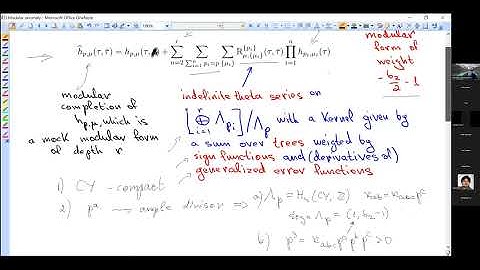 ĥ_{p,μ}(τ,τ̄) = h_{p,μ}(τ) + Σ_{n=2}^{r} Σ_{Σ_{i=1}^{n} p_i = p} Σ_{{μ_i}} R_{μ,{μ_i}}^{{p_i}}(τ,τ̄) Π_{i=1}^{n} h_{p_i,μ_i}(τ)
modular
form of
weight
-b₂/2 - 1
modular
completion of
h_{p,μ}, which is
a mock modular form
of depth r
indefinite theta series on
[⊕_{i=1}^{r} Λ_{p_i}]/Λ_p with a kernel given by
a sum over trees weigted by
sign functions and (derivatives of)
generalized error functions
1) CY - compact
2) p^a → ample divisor ⇒ a) Λ_p = H₄(CY, Z) κ_{ab} = κ_{abc} p^c
sign Λ_p = (1, b₂-1)
b) p³ = κ_{abc} p^a p^b p^c > 0